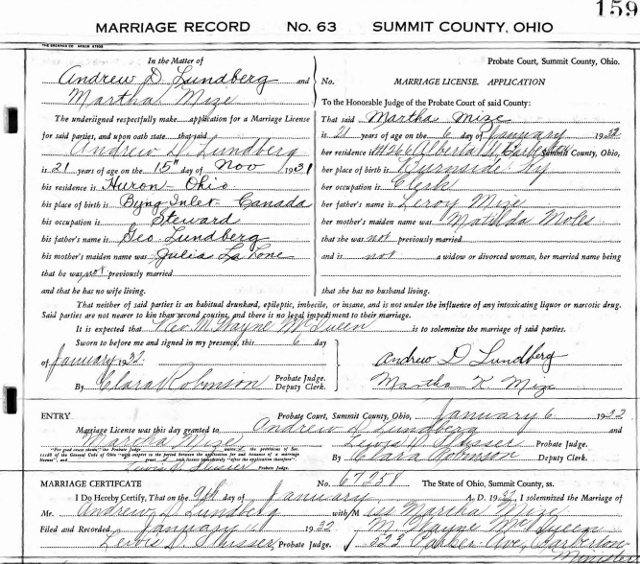 159
MARRIAGE RECORD No. 63 SUMMIT COUNTY, OHIO
In the Matter of
Andrew D. Lundberg and
Martha Mize
The undersigned respectfully make application for a Marriage License
for said parties, and upon oath state that said
Andrew D. Lundberg
is 21 years of age on the 15" day of Nov 1931
his residence is Huron - Ohio
his place of birth is Byng Inlet - Canada
his occupation is Steward
his father's name is Geo. Lundberg
his mother's maiden name was Julia La Lone
that he was not previously married
and that he has no wife living.
Probate Court, Summit County, Ohio.
No. MARRIAGE LICENSE. APPLICATION
To the Honorable Judge of the Probate Court of said County:
That said Martha Mize
is 21 years of age on the 6 day of January 1932
her residence is Alberta Summit County, Ohio,
her place of birth is Burnside Ky
her occupation is Clerk
her father's name is Leroy Mize
her mother's maiden name was Matilda Moles
that she was not previously married
and is not a widow or divorced woman, her married name being
that she has no husband living
That neither of said parties is an habitual drunkard, epileptic, imbecile, or insane, and is not under the influence of any intoxicating liquor or narcotic drug.
Said parties are not nearer to kin than second cousins, and there is no legal impediment to their marriage.
It is expected that Rev M. Wayne McQueen is to solemnize the marriage of said parties.
Sworn to before me and signed in my presence, this 6 day
of January 1932.
Probate Judge.
By Clara Robinson Deputy Clerk.
Andrew D Lundberg
Martha K. Mize
ENTRY Probate Court, Summit County, Ohio, January 6 1932
Marriage License was this day granted to Andrew D. Lundberg and
Martha Mize
Lewis D. Slusser Probate Judge
Lewis D. Slusser Probate Judge.
By Clara Robinson Deputy Clerk.
MARRIAGE CERTIFICATE No. 67258 The State of Ohio, Summit County, ss.
I Do Hereby Certify, That on the 9th day of January A. D. 1932, I solemnized the Marriage of
Mr. Andrew D. Lundberg with Miss Martha Mize
Filed and Recorded January 11 1932 M. Wayne McQueen
Lewis D. Slusser Probate Judge. 523 Parker Ave, Barberton
Minister